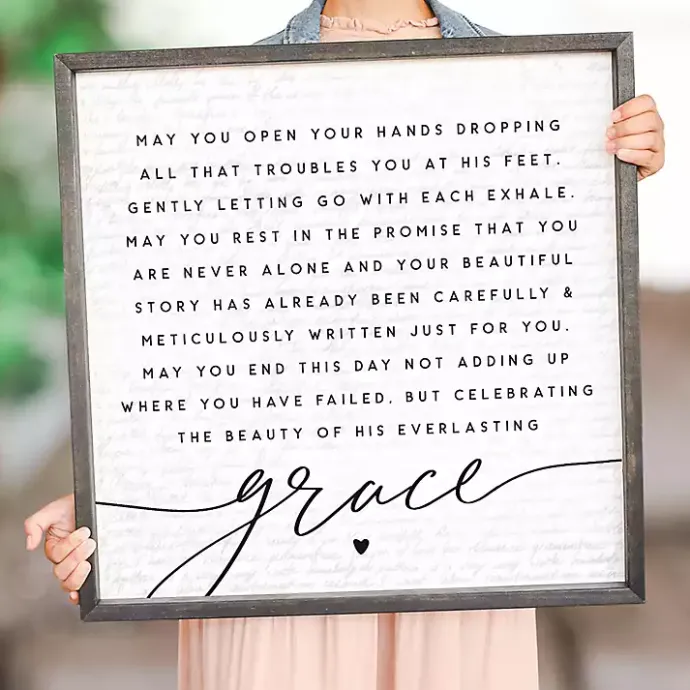 MAY YOU OPEN YOUR HANDS DROPPING
ALL THAT TROUBLES YOU AT HIS FEET.
GENTLY LETTING GO WITH EACH EXHALE.
MAY YOU REST IN THE PROMISE THAT YOU
ARE NEVER ALONE AND YOUR BEAUTIFUL
STORY HAS ALREADY BEEN CAREFULLY &
METICULOUSLY WRITTEN JUST FOR YOU.
MAY YOU END THIS DAY NOT ADDING UP
WHERE YOU HAVE FAILED, BUT CELEBRATING
THE BEAUTY OF HIS EVERLASTING
grace